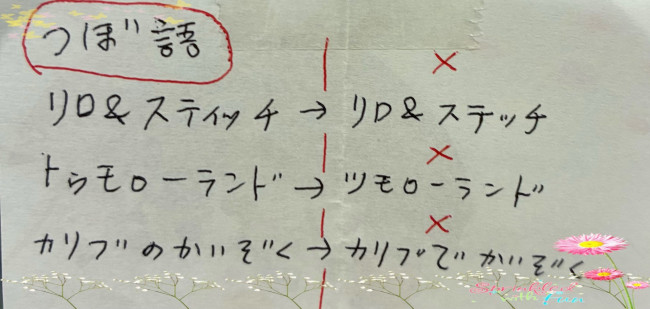 つぼ語
×
リロ&スティッチ→リロ&ステッチ
×
トゥモローランド→ツモローランド
×
カリブのかいぞく→カリブでかいぞく